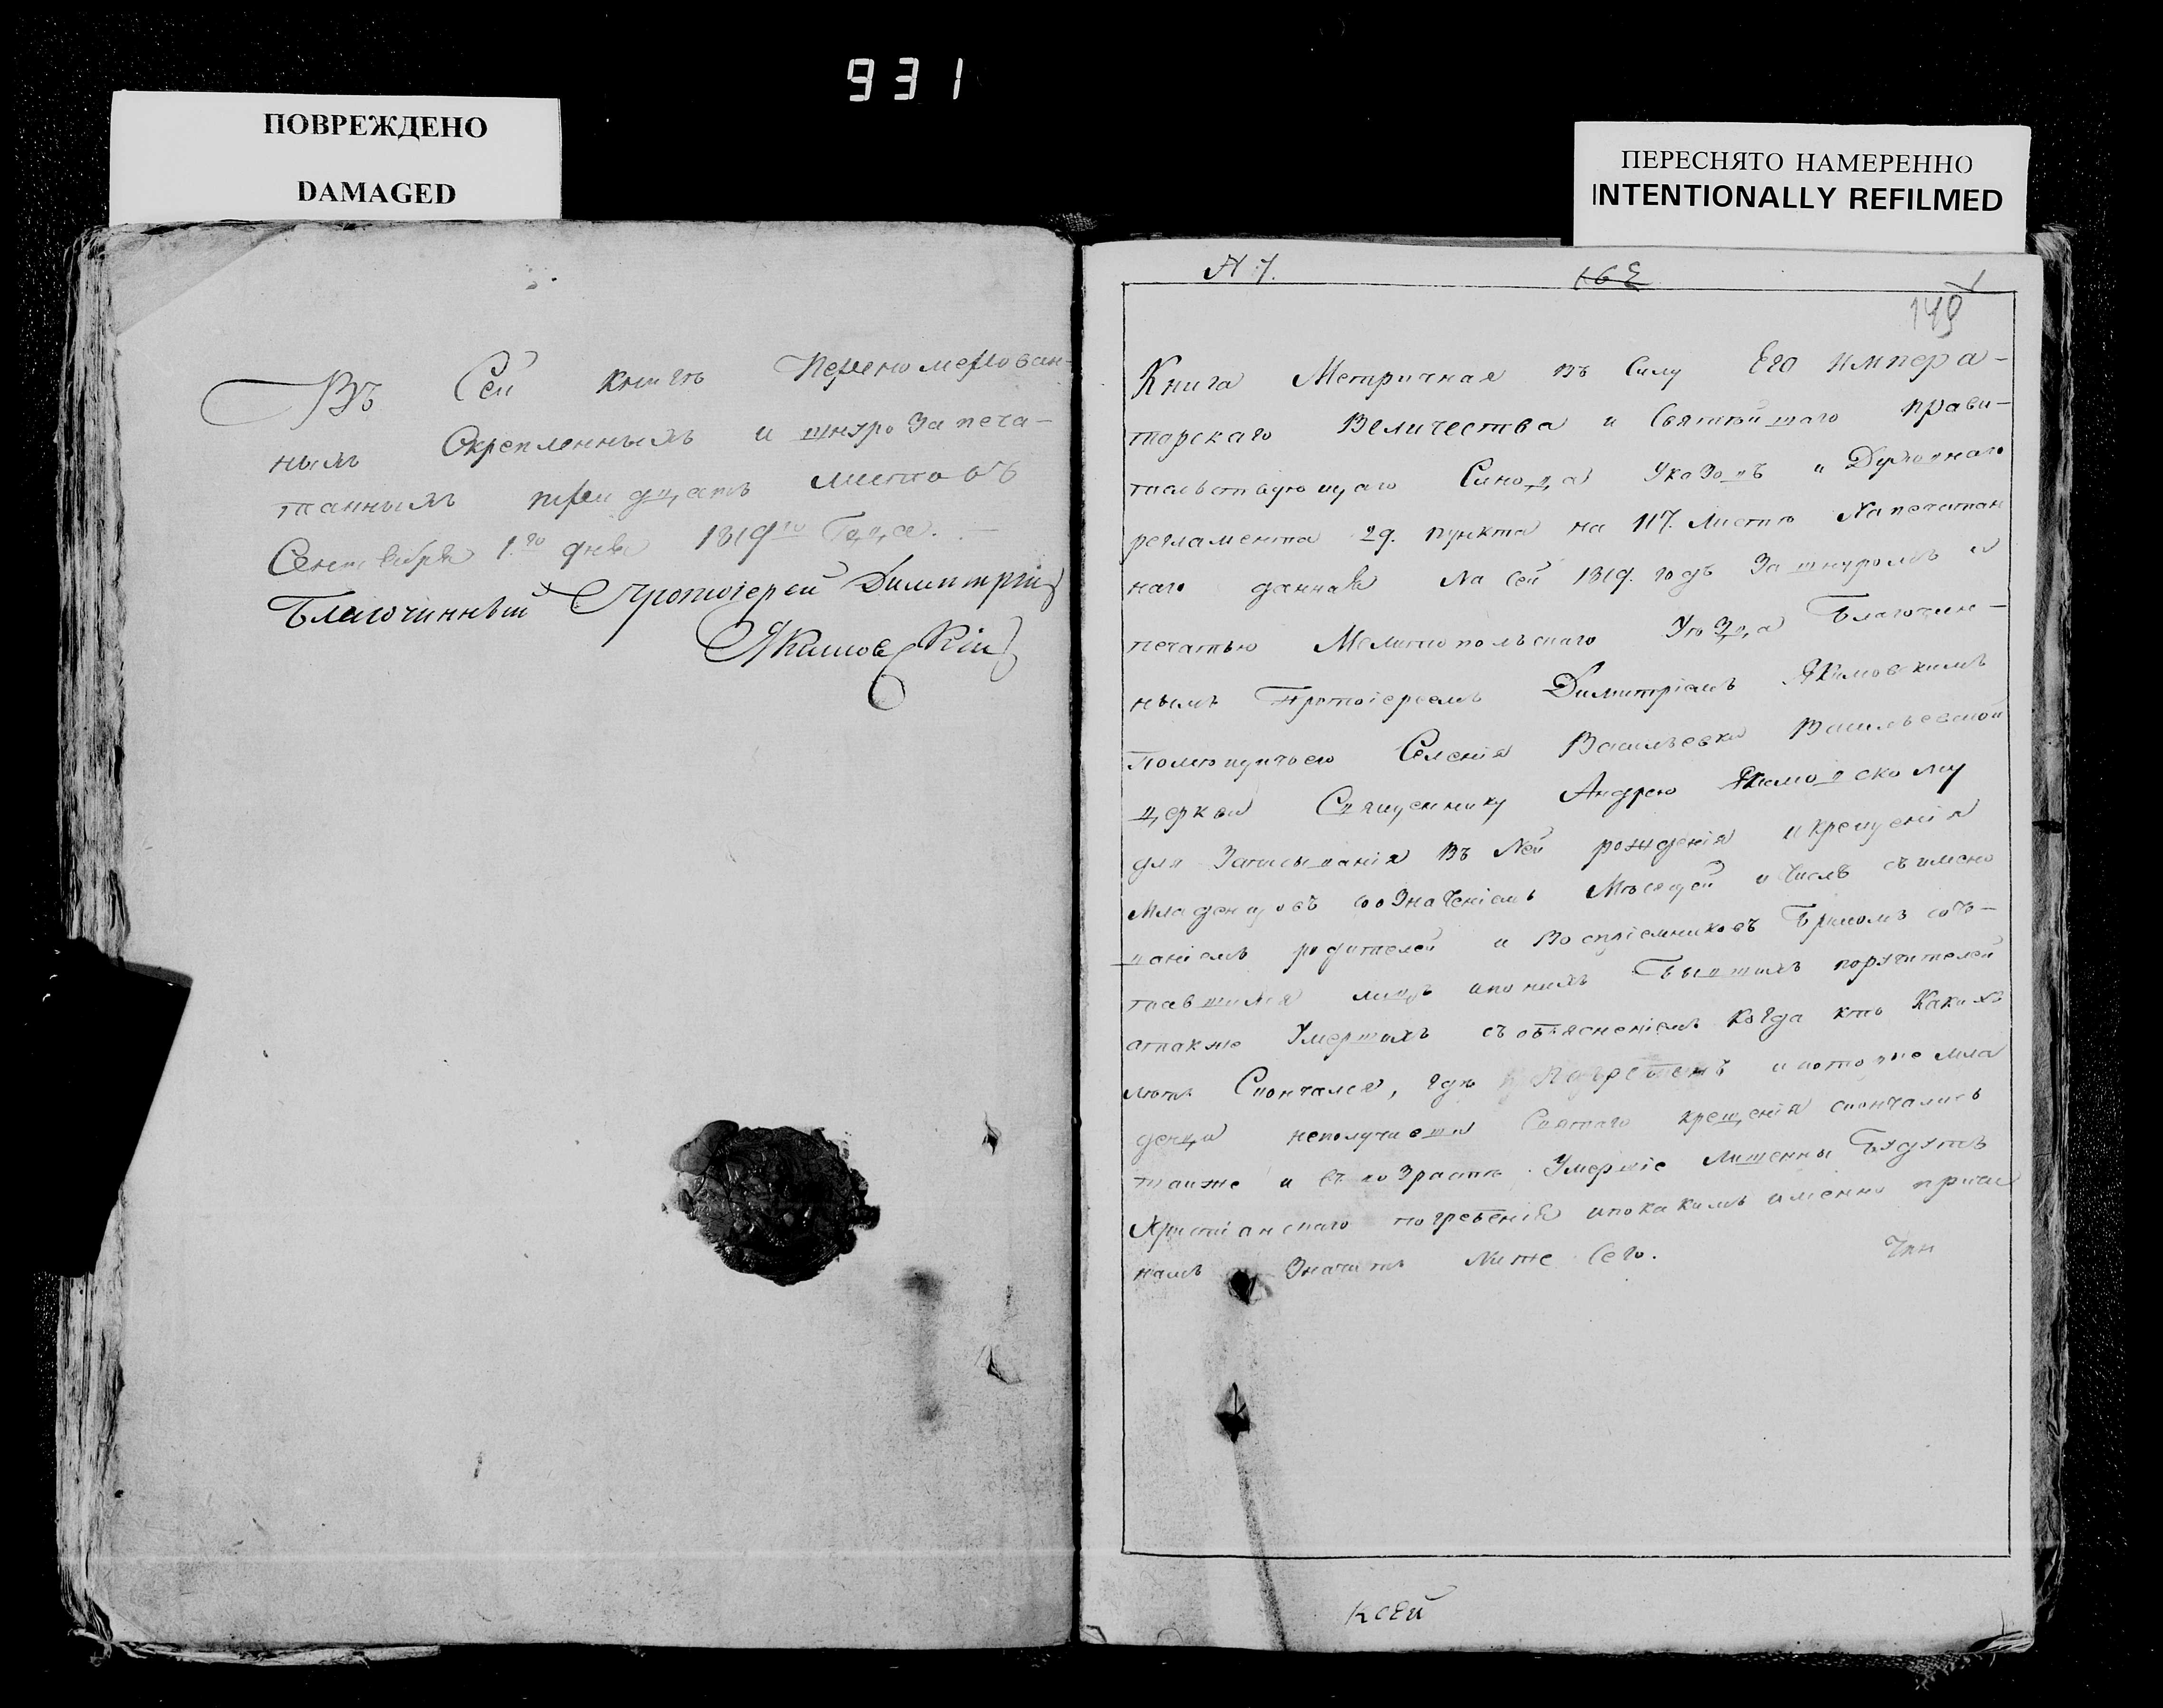 931
ПОВРЕЖДЕНО
DAMAGED
ПЕРЕСНЯТО НАМЕРЕННО
INTENTIONALLY REFILMED
Въ Сей книгѣ Перенумерован-
ныхъ Скрепленныхъ и шнуро запеча-
танныхъ тридцать листовъ
Сентября 1.го дня 1819го Года. –
Благочинный Протоіерей Димитрій
Якимовскій
149
Книга Метричная въ Силу Его импера-
торскаго Величества и Святѣйшаго прави-
тельствующаго Синода Указовъ и Духовнаго
регламента 29. пункта на 117. Листѣ Напечатан
наго данная На Сей 1819. годъ За шнуромъ и
печатью Мелитопольскаго Уѣзда Благочин-
нымъ Протоіереемъ Димитріемъ Якимовскимъ
Селенія Васильевки Васильевской
церкви Священнику Андрею Якимовскому
для Записыванія въ Ней рожденія и крещенія
Младенцовъ со означеніемъ Мѣсяцей и Числъ съ имено
ваніемъ родителей и Воспріемниковъ Бракомъ соче-
тавшихся лицъ и по нихъ Бывшихъ поручителей
атакже Умершихъ съ объясненіемъ Когда кто Какихъ
лѣтъ Скончался, гдѣ и которые мла
денцы неполучивши Святаго крещенія скончались
также и въ возрастѣ Умершіе Лишенны Будутъ
Христіанскаго погребенія ипокакимъ именно причи
намъ Значитъ Ниже Сего.